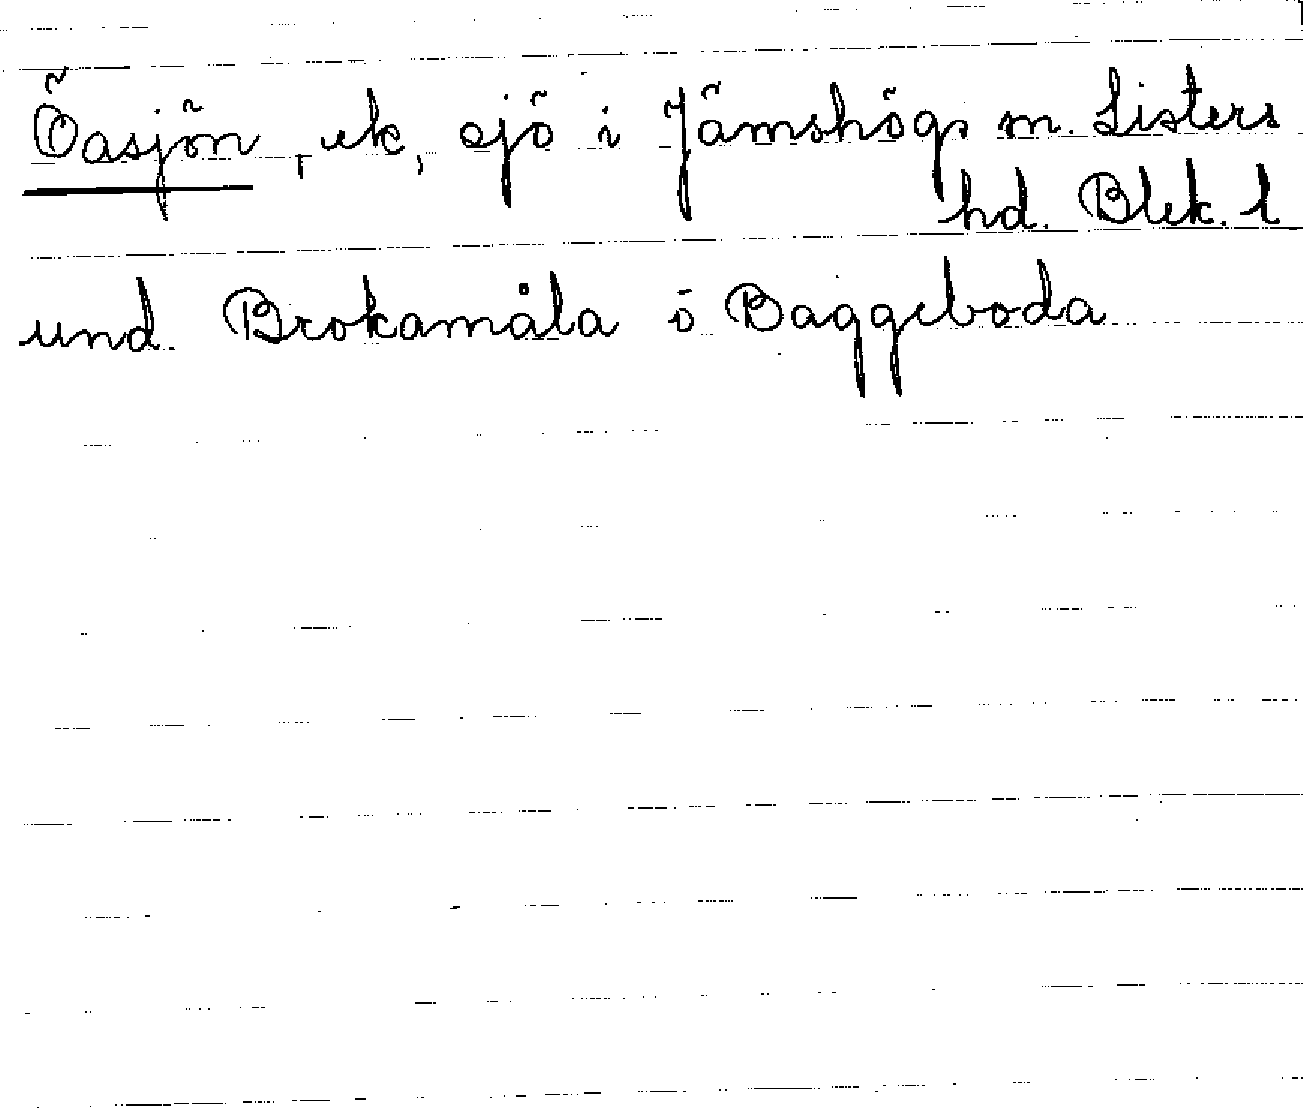 Öasjön, ek, sjö i Jämshögs m. Listers
hd. Blek. l
und. Brokamåla ö Baggeboda